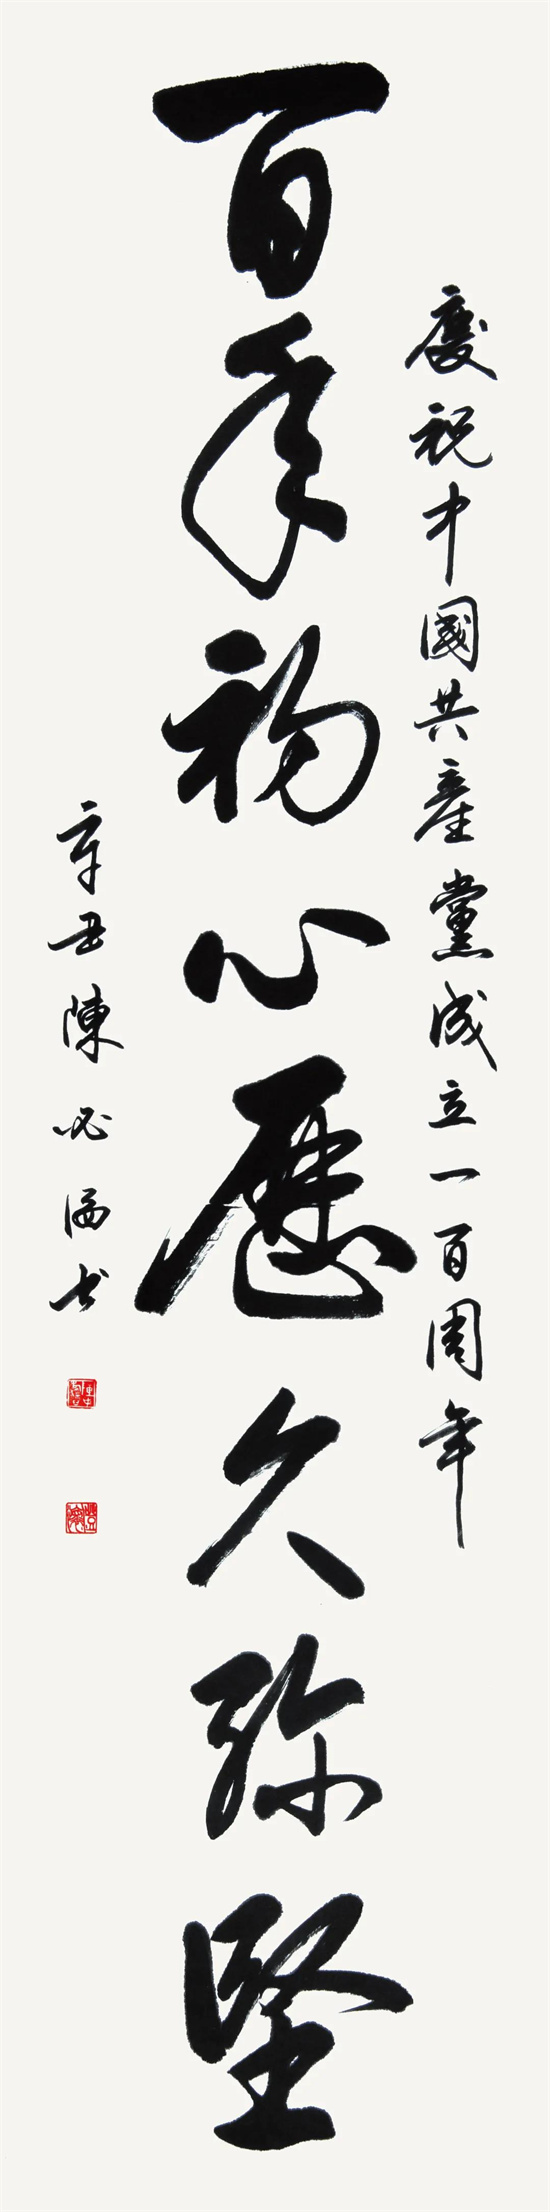 慶祝中國共產黨成立一百周年
百年初心歷久弥堅
辛丑陳必书